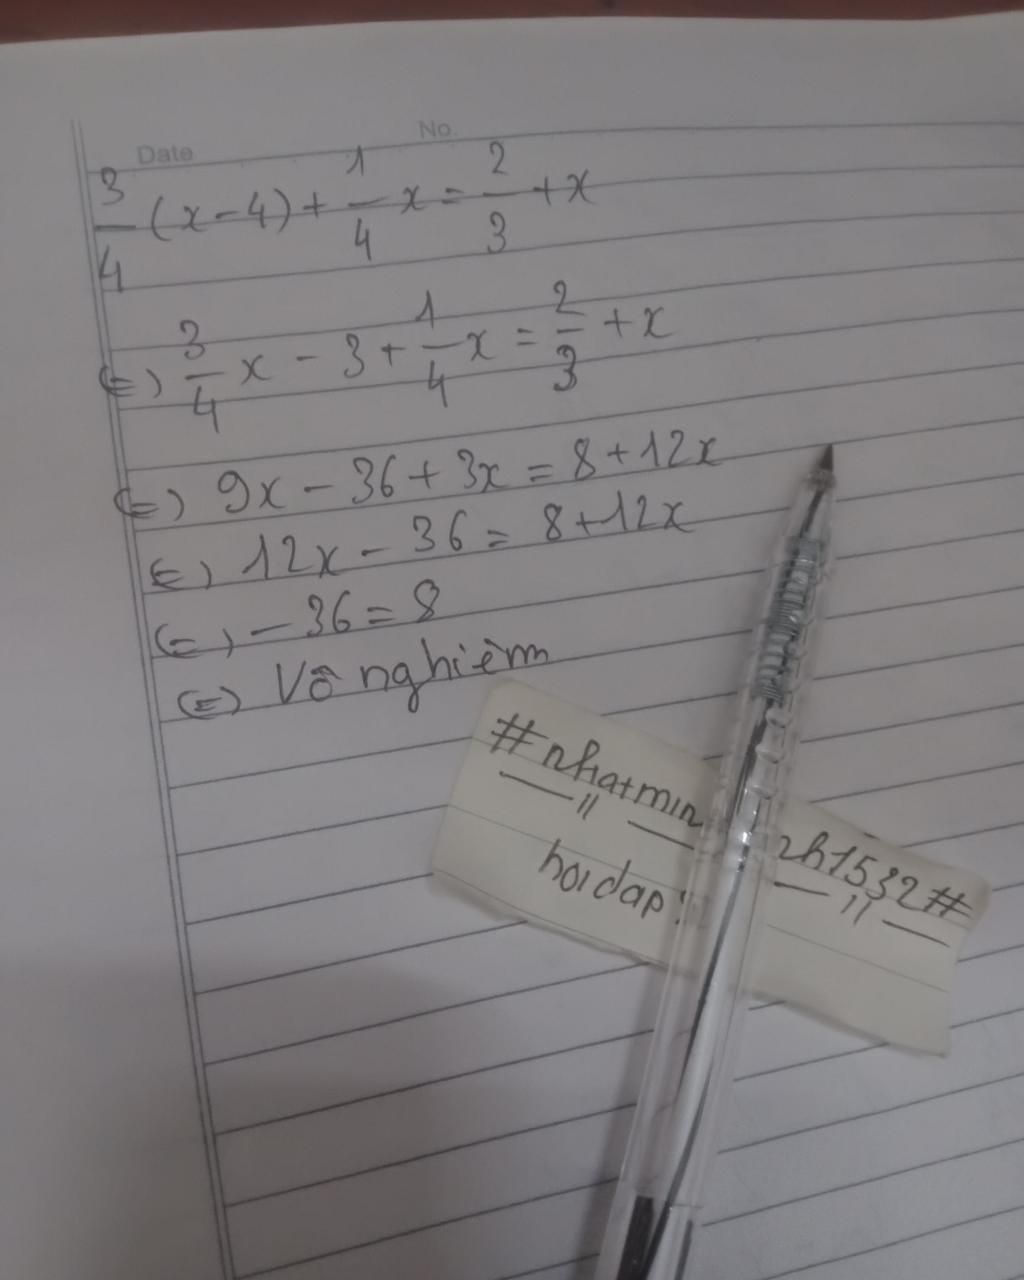 Date No.
3/4 (x-4) + 1/4 x = 2/3 + x
(=) 3/4 x - 3 + 1/4 x = 2/3 + x
(=) 9x - 36 + 3x = 8 + 12x
(=) 12x - 36 = 8 + 12x
(=) - 36 = 8
(=) Vô nghiệm
#nhatmin nh1532#
hoidap